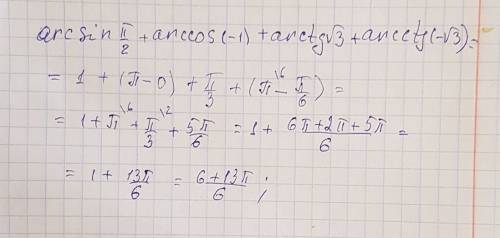 arcsin π/2 + arccos(-1) + arctg√3 + arcctg(-√3) =
= 1 + (π-0) + π/3 + (π\6 - π/6) =
= 1 + π\6 + π/3\2 + 5π/6 = 1 + (6π+2π+5π)/6 =
= 1 + 13π/6 = (6+13π)/6 ;